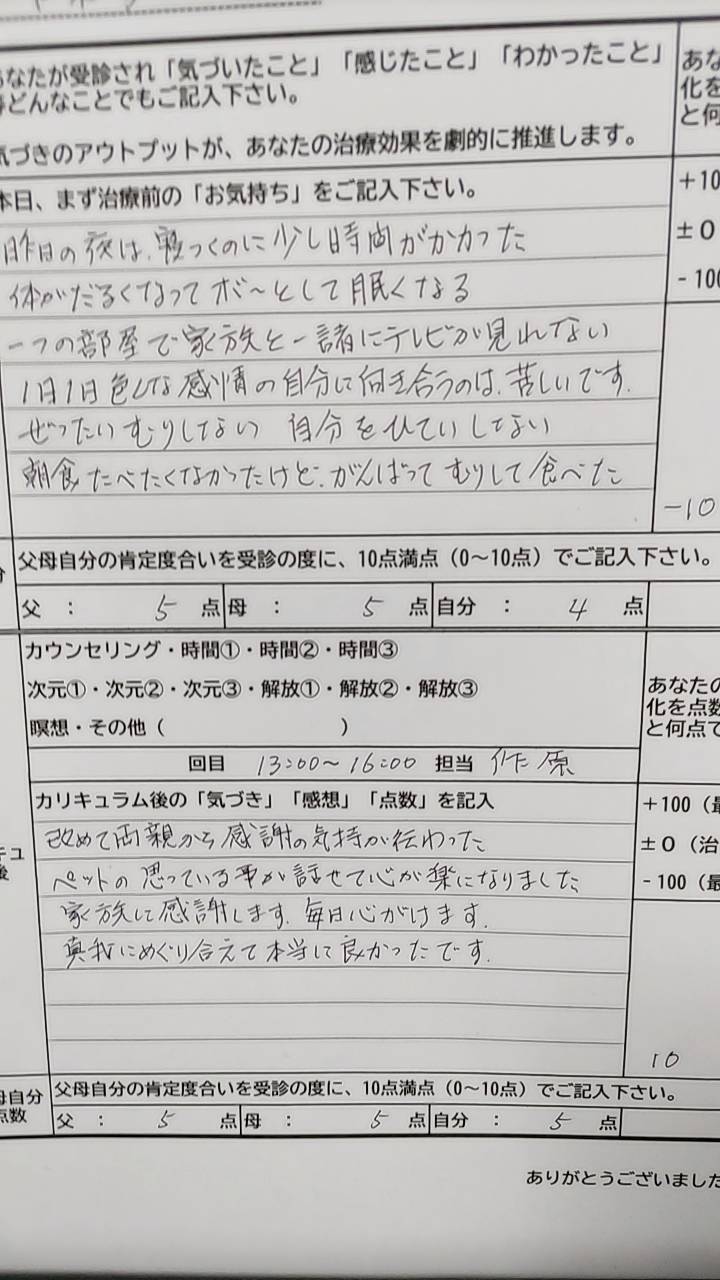 なたが受診され「気づいたこと」「感じたこと」「わかったこと」
等どんなことでもご記入下さい。
気づきのアウトプットが、あなたの治療効果を劇的に推進します。
あな
化を
と何
本日、まず治療前の「お気持ち」をご記入下さい。
+10
±0
-100
昨日の夜は、寝つくのに少し時間がかかった
体がだるくなってボ〜として眠くなる
一つの部屋で家族と一諸にテレビが見れない
1日1日色んな感情の自分に向き合うのは、苦しいです。
ぜったいむりしない 自分をひていしない
朝食たべたくなかったけど、がんばってむりして食べた
-10
父母自分の肯定度合いを受診の度に、10点満点（0〜10点）でご記入下さい。
父 ： 5 点 母 ： 5 点 自分 ： 4 点
カウンセリング・時間①・時間②・時間③
次元①・次元②・次元③・解放①・解放②・解放③
瞑想・その他（ ）
あなたの
化を点数
と何点で
回目 13:00〜16:00 担当 作原
カリキュラム後の「気づき」「感想」「点数」を記入
+100（最
±0（治
-100（最
キュ
後
改めて両親から感謝の気持が伝わった
ペットの思っている事が話せて心が楽になりました
家族に感謝します。毎日心がけます。
真我にめぐり合えて本当に良かったです。
10
母自分
点数
父母自分の肯定度合いを受診の度に、10点満点（0〜10点）でご記入下さい。
父 ： 5 点 母 ： 5 点 自分 ： 5 点
ありがとうございました